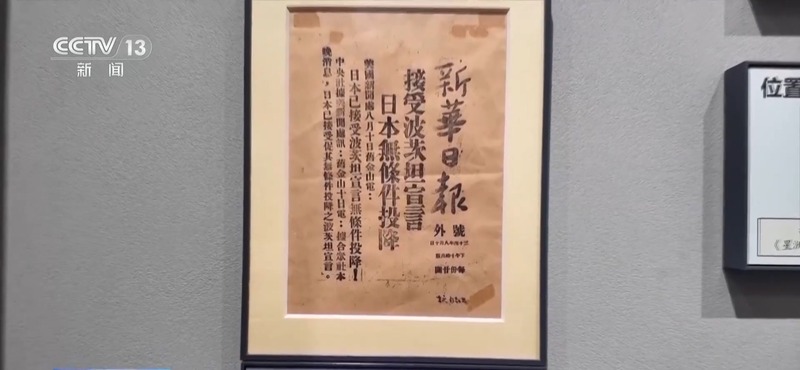 CCTV 13
新闻
新華日報
號外
接受波茨坦宣言
日本無條件投降
美國新聞處八月十日舊金山電：
日本已接受波茨坦宣言無條件投降！
中央社據美新聞處訊：舊金山十日電：據合眾社本
晚消息，日本已接受促其無條件投降之波茨坦宣言。
位置
《星洲